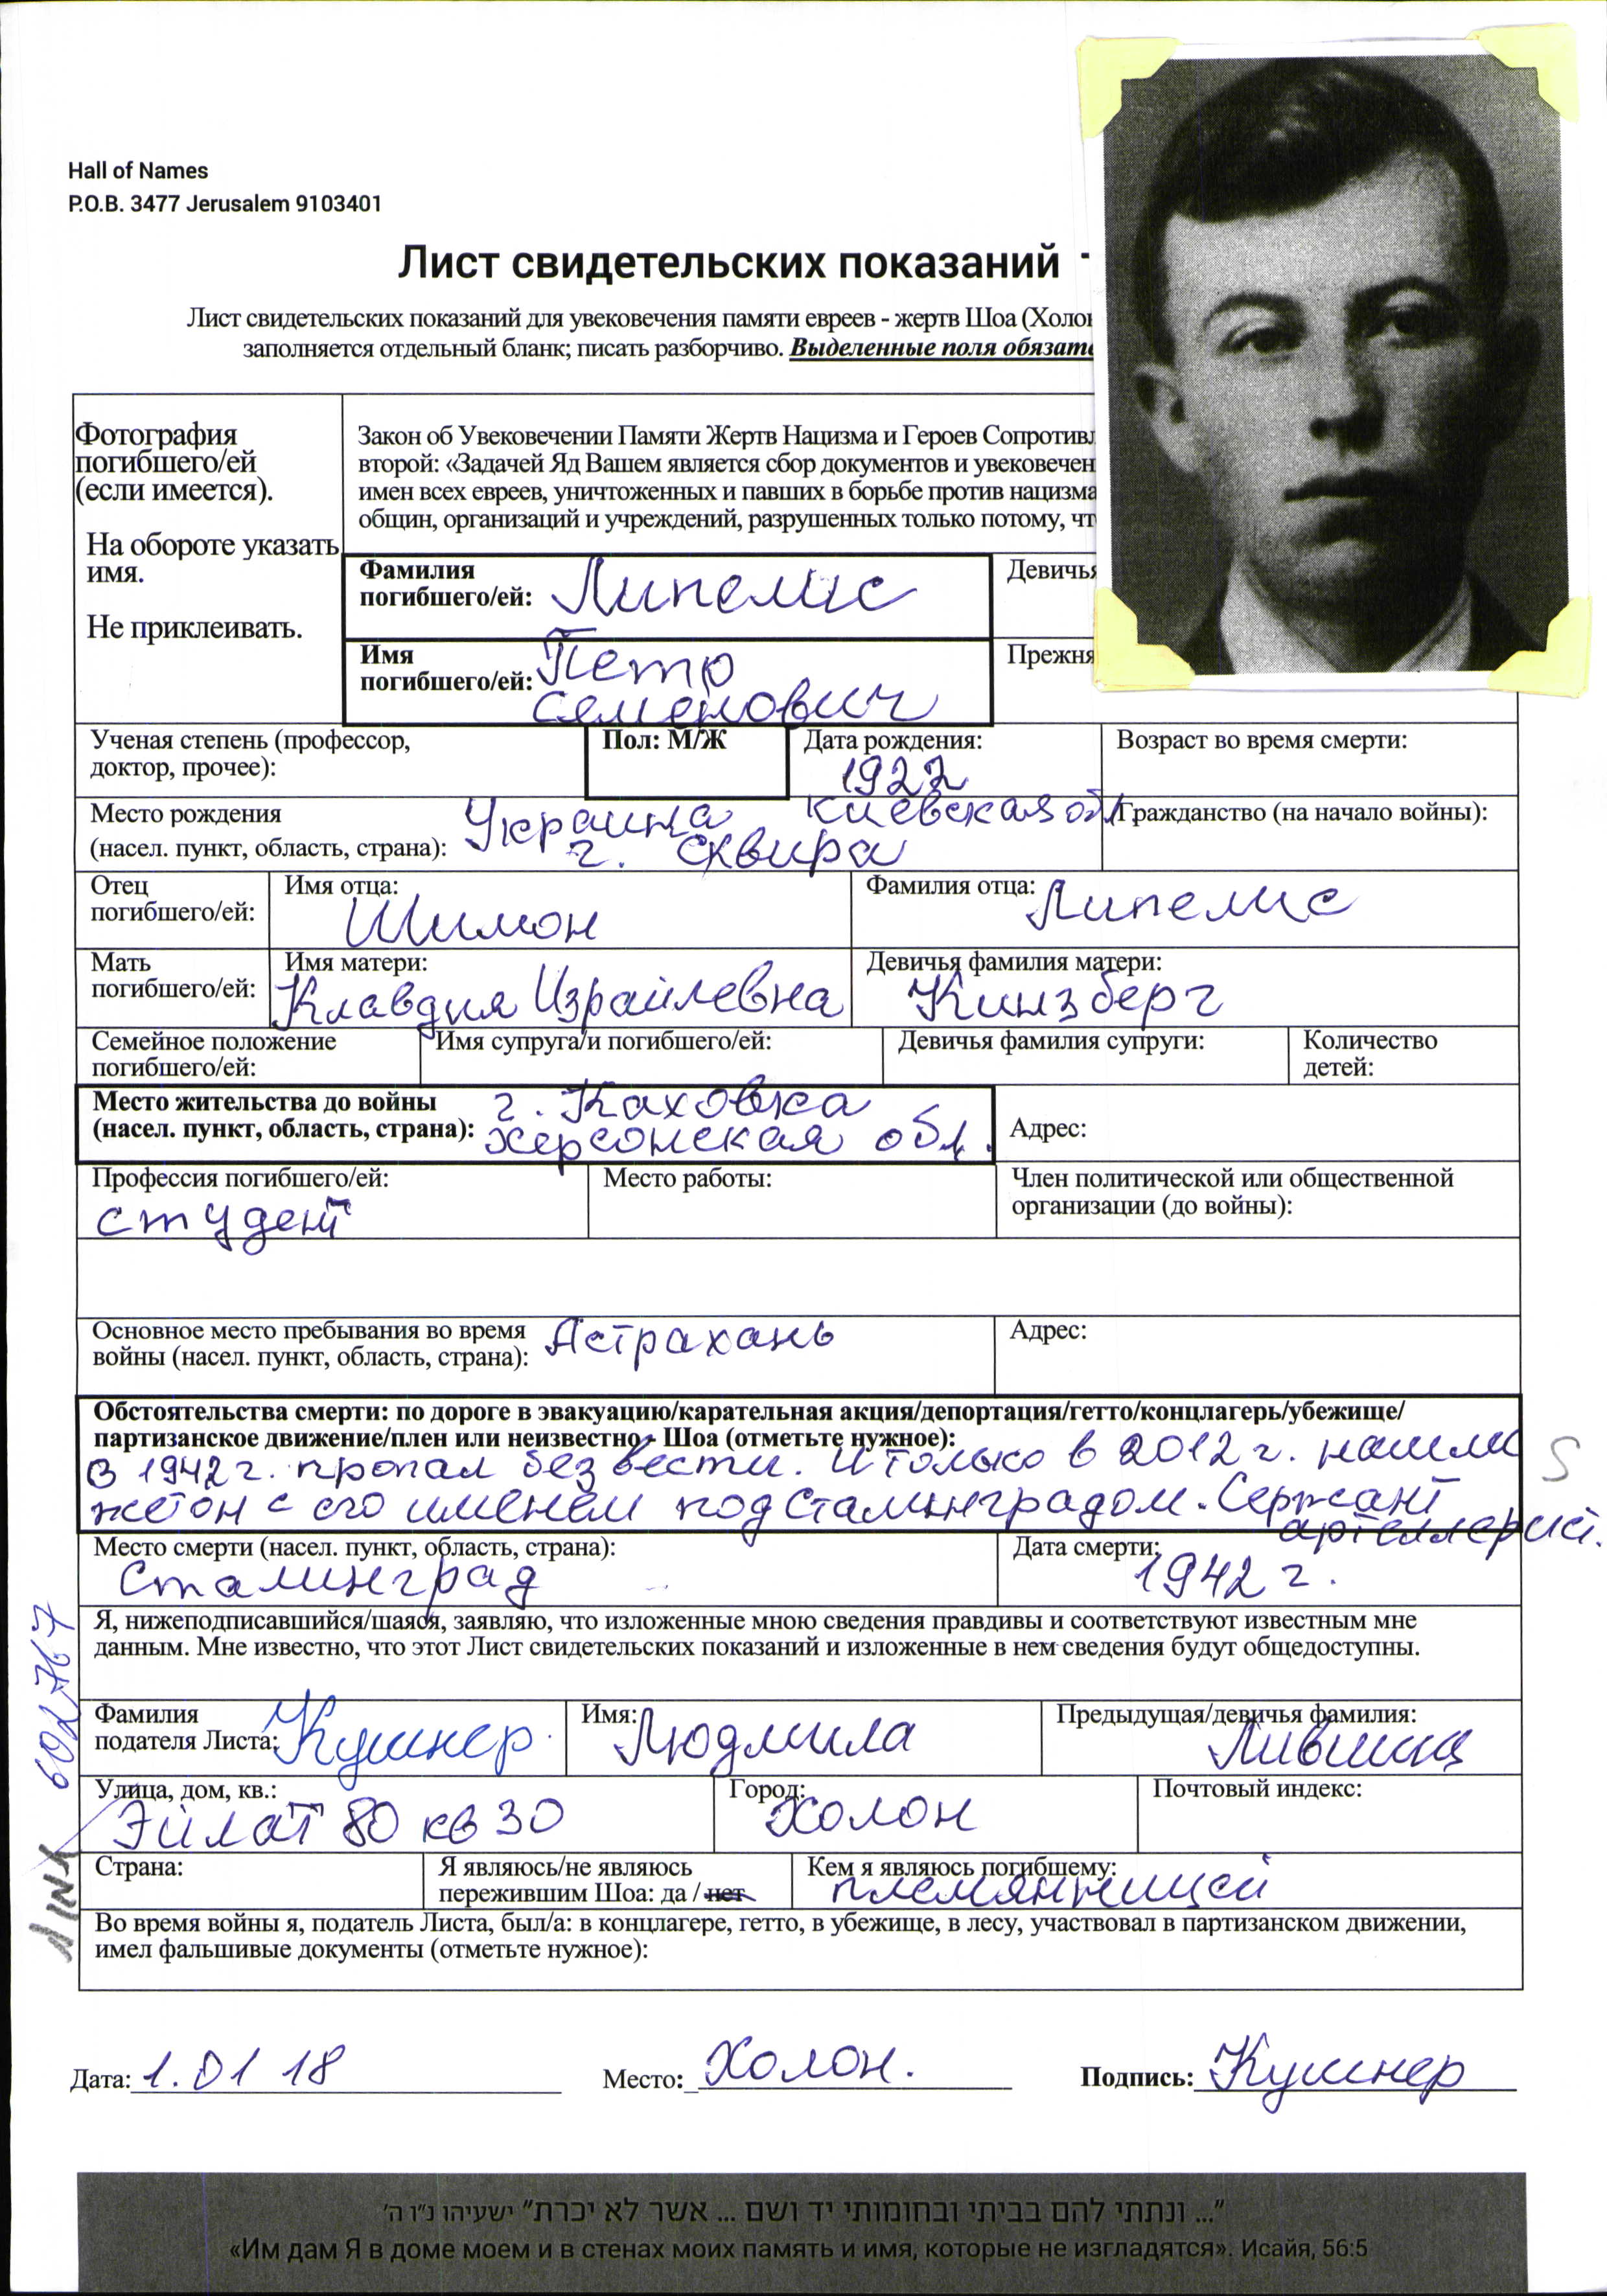 Hall of Names
P.O.B. 3477 Jerusalem 9103401
Лист свидетельских показаний -
Лист свидетельских показаний для увековечения памяти евреев - жертв Шоа (Холок
заполняется отдельный бланк; писать разборчиво. Выделенные поля обязате
Фотография
погибшего/ей
(если имеется).
На обороте указать
имя.
Не приклеивать.
Закон об Увековечении Памяти Жертв Нацизма и Героев Сопротивл
второй: «Задачей Яд Вашем является сбор документов и увековечен
имен всех евреев, уничтоженных и павших в борьбе против нацизма
общин, организаций и учреждений, разрушенных только потому, чт
Фамилия
погибшего/ей: Липелис
Девичья
Имя
погибшего/ей: Петр
Семенович
Прежня
Ученая степень (профессор,
доктор, прочее):
Пол: М/Ж
Дата рождения:
1922
Возраст во время смерти:
Место рождения
(насел. пункт, область, страна):
Украина Киевская обл.
г. Сквира
Гражданство (на начало войны):
Отец
погибшего/ей:
Имя отца:
Шимон
Фамилия отца: Липелис
Мать
погибшего/ей:
Имя матери:
Клавдия Израилевна
Девичья фамилия матери:
Кинзберг
Семейное положение
погибшего/ей:
Имя супруга/и погибшего/ей:
Девичья фамилия супруги:
Количество
детей:
Место жительства до войны
(насел. пункт, область, страна):
г. Каховка
Херсонская обл.
Адрес:
Профессия погибшего/ей:
студент
Место работы:
Член политической или общественной
организации (до войны):
Основное место пребывания во время
войны (насел. пункт, область, страна):
Астрахань
Адрес:
Обстоятельства смерти: по дороге в эвакуацию/карательная акция/депортация/гетто/концлагерь/убежище/
партизанское движение/плен или неизвестно - Шоа (отметьте нужное):
В 1942 г. пропал без вести. И только в 2012 г. нашли
жетон с его именем под Сталинградом. Сержант
артеллерист.
S
Место смерти (насел. пункт, область, страна):
Сталинград
Дата смерти:
1942 г.
Я, нижеподписавшийся/шаяся, заявляю, что изложенные мною сведения правдивы и соответствуют известным мне
данным. Мне известно, что этот Лист свидетельских показаний и изложенные в нем сведения будут общедоступны.
Фамилия
подателя Листа: Кушнер
Имя: Людмила
Предыдущая/девичья фамилия:
Лившиц
Улица, дом, кв.:
Эйлат 80 кв 30
Город:
Холон
Почтовый индекс:
Страна:
Я являюсь/не являюсь
пережившим Шоа: да / нет
Кем я являюсь погибшему:
племянницей
Во время войны я, податель Листа, был/а: в концлагере, гетто, в убежище, в лесу, участвовал в партизанском движении,
имел фальшивые документы (отметьте нужное):
Дата: 1.01 18
Место: Холон.
Подпись: Кушнер
"... ונתתי להם בביתי ובחומותי יד ושם ... אשר לא יכרת" ישעיהו נ"ו ה'
«Им дам Я в доме моем и в стенах моих память и имя, которые не изгладятся». Исайя, 56:5